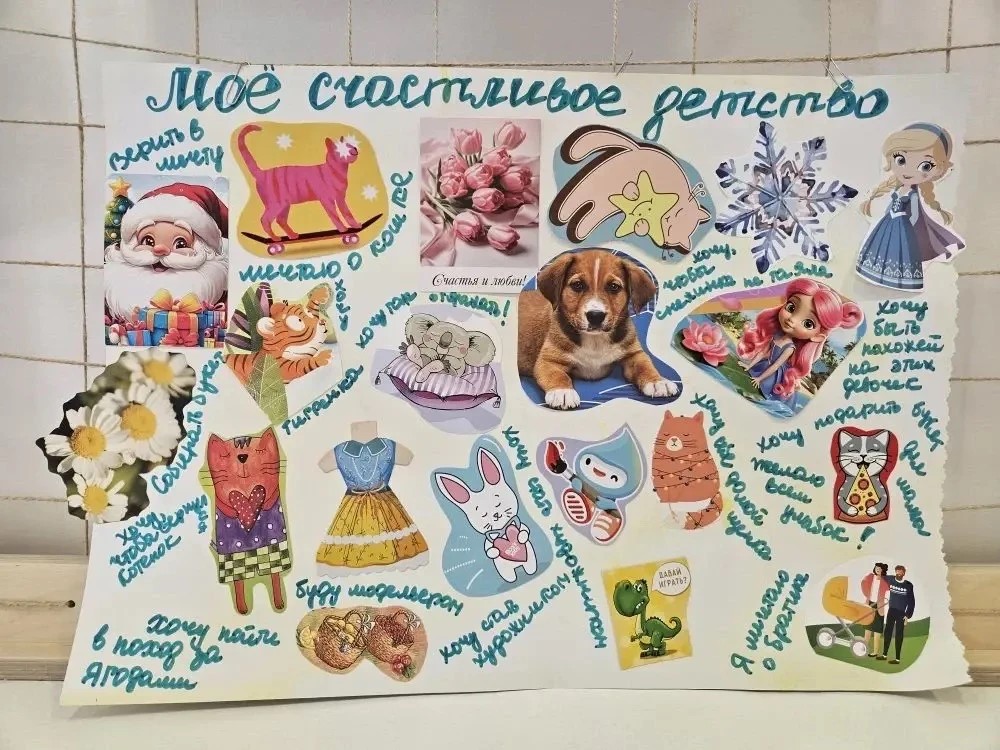 Моё счастливое детство
Верить в
мечту
мечтаю о кошке
Счастья и любви!
хочу,
чтобы
снежинка не таяла
хочу так отдыхать!
хочу
быть
похожей
на этих
девочек
тигрёнка
Собирать букет
хочу подарить букет
для
мамы
желаю
всем
улыбок!
хочу
чтоб
котёнок
хочу
домой
буду модельером
хочу стать
художником
хочу пойти
в поход за
Ягодами
ДАВАЙ
ИГРАТЬ?
Я мечтаю
о братике